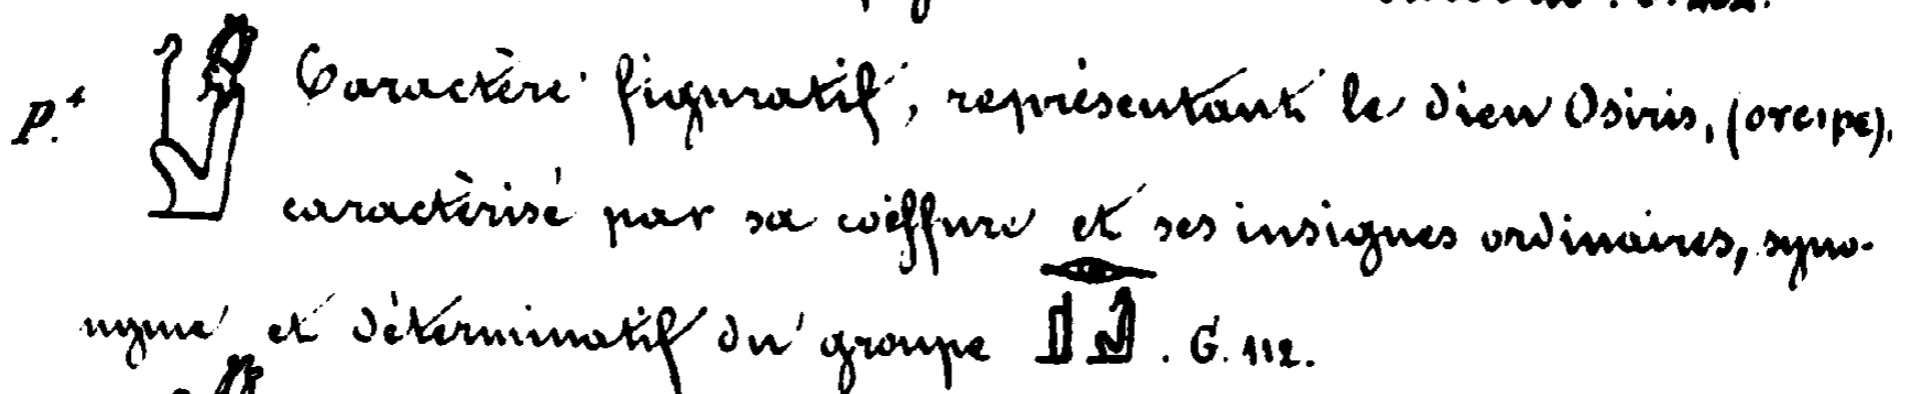 P.⁴ Caractère figuratif, représentant le dieu Osiris, (ⲟⲩⲥⲓⲣⲉ).
caractérisé par sa coëffure et ses insignes ordinaires, syno-
nyme et déterminatif du groupe . G. 112.